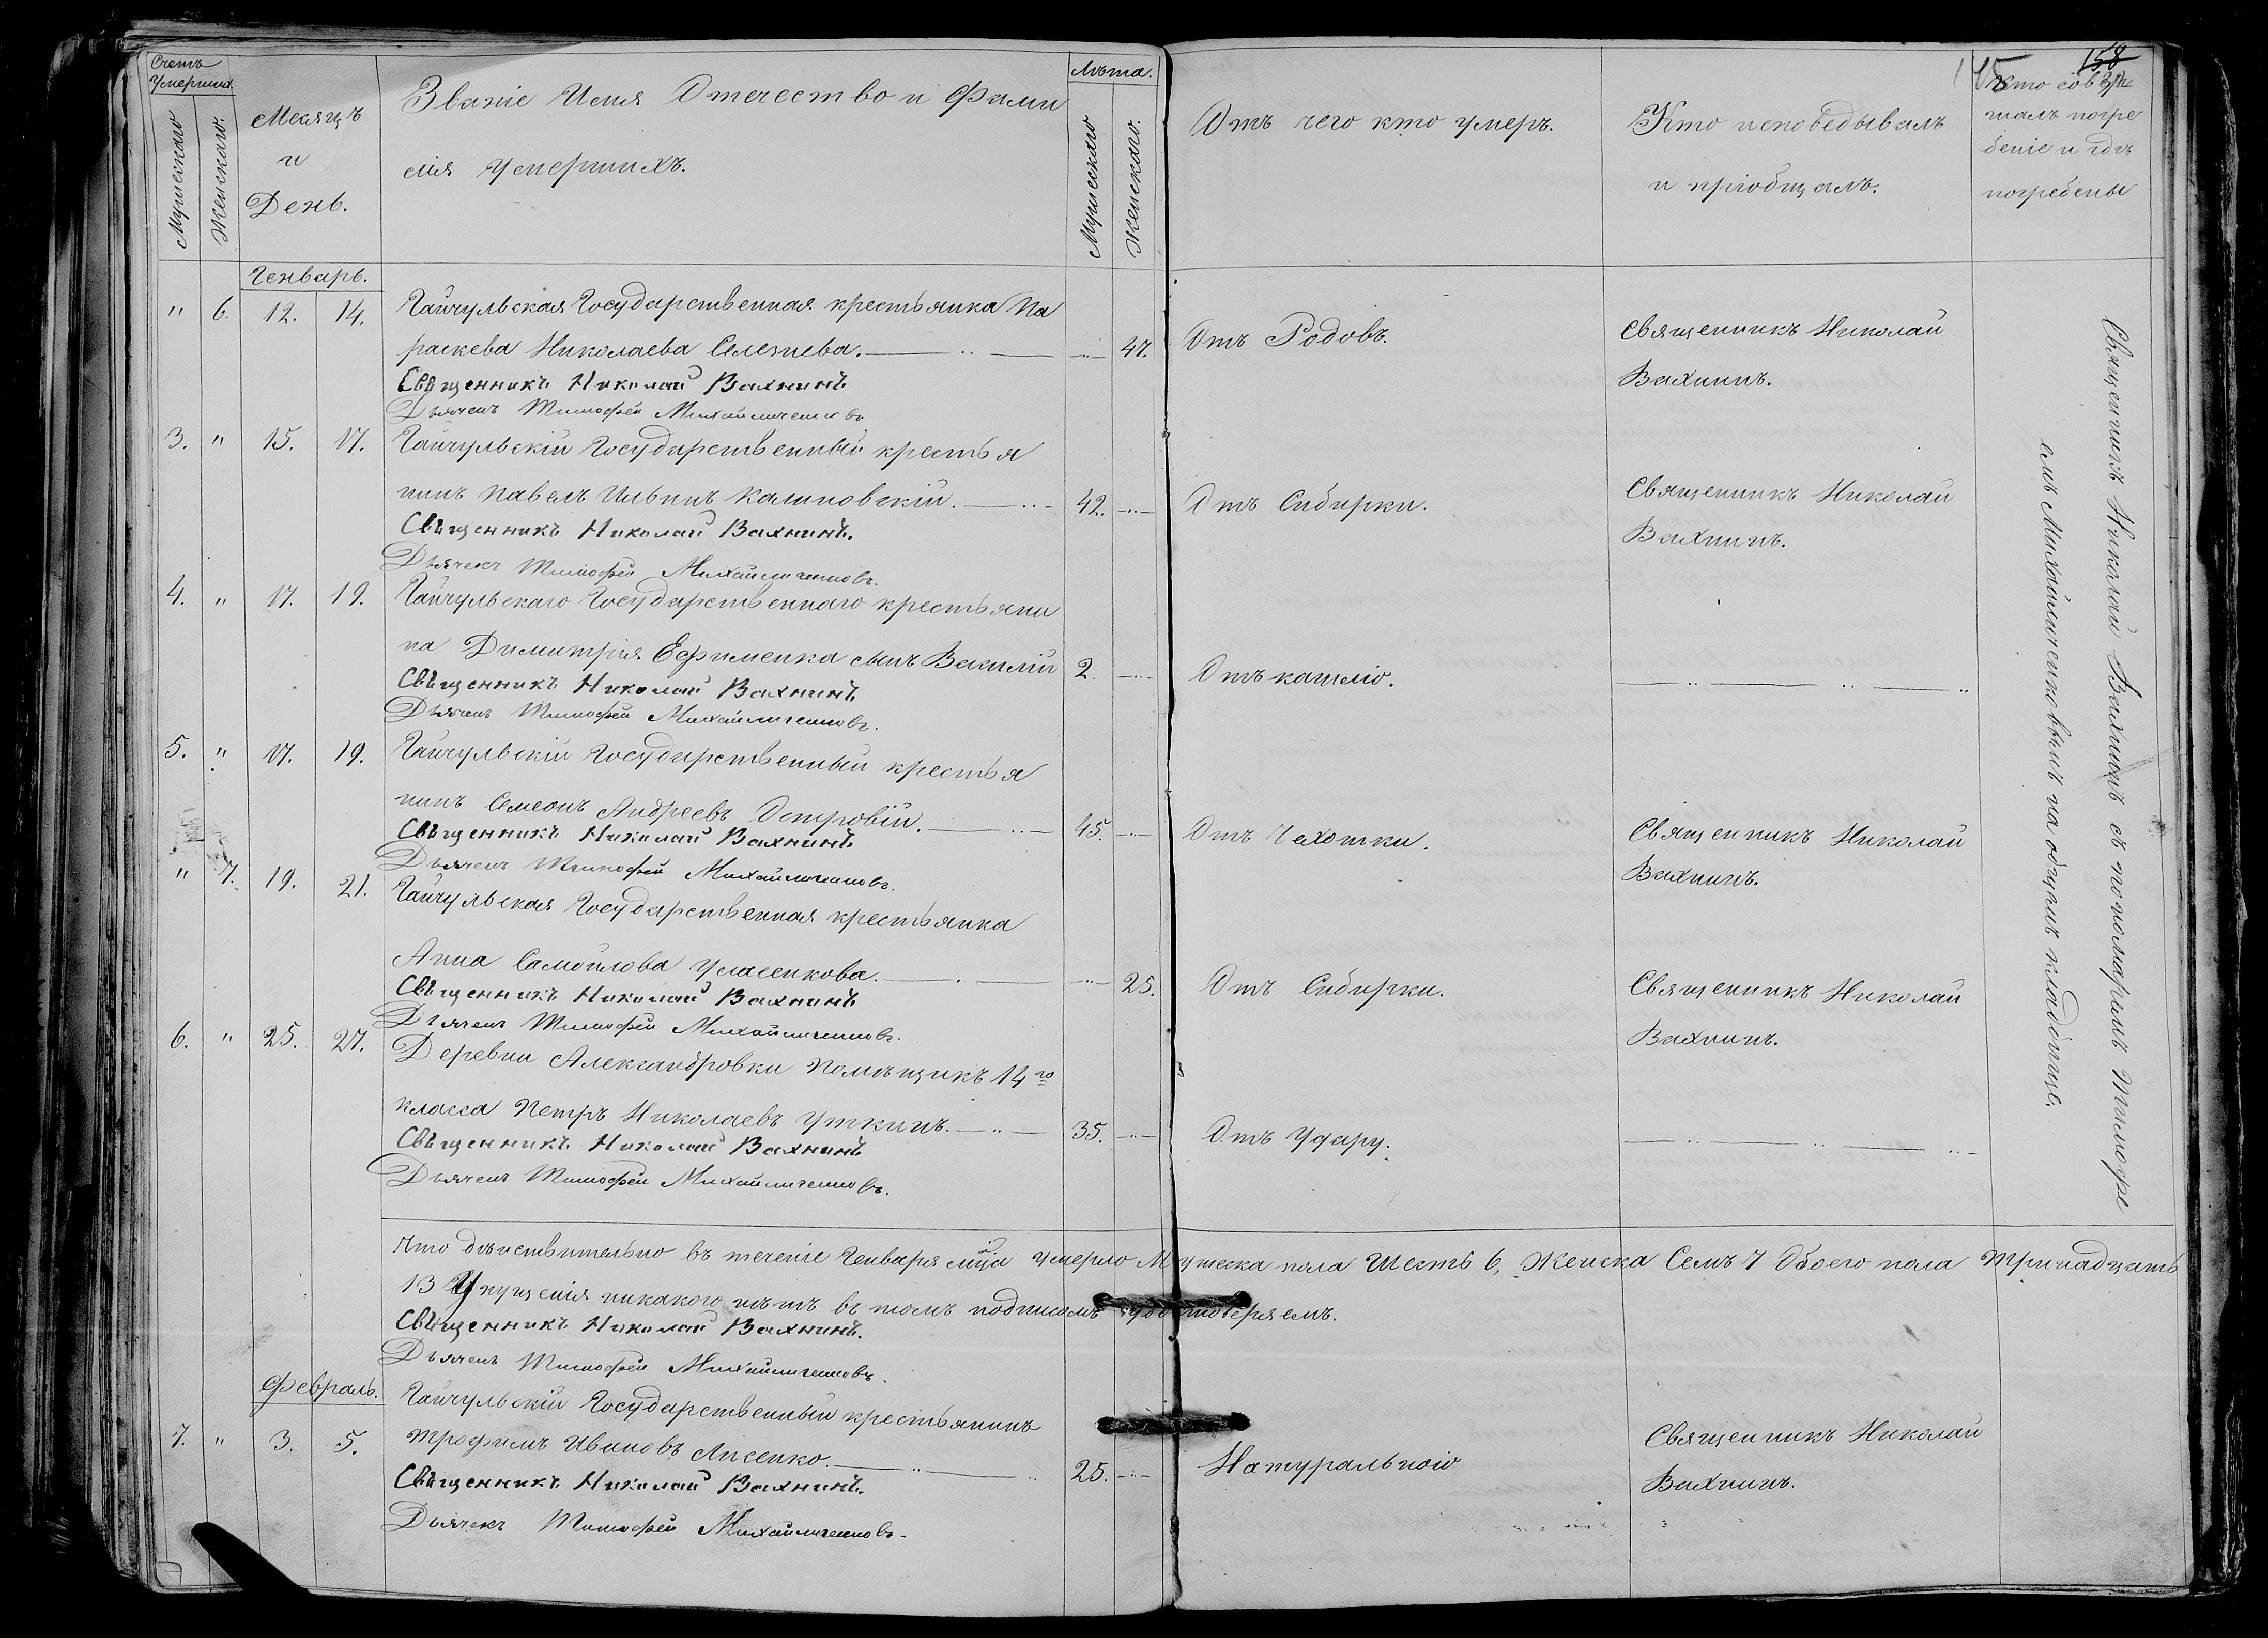 158
145
Счетъ
Умершихъ
Мужескаго
Женскаго.
Месяцъ
и
День.
Званіе Имя Отечество и Фами
лія Умершихъ.
Лѣта.
Мужескаго
Женскаго.
Отъ чего кто умеръ.
Кто исповедывалъ
и пріобщалъ.
Кто совер
шалъ погре
беніе и где
погребены
Генварь.
" 6. 12. 14. Гайчульская Государственная крестьянка Па
раскева Николаева Селезнева. 47. Отъ Родовъ. Священникъ Николай
Вахнинъ.
Священникъ Николай Вахнинъ
Дьячекъ Тимофей Михайличенковъ
3. " 15. 17. Гайчульскій Государственный крестья
нинъ Павелъ Ильинъ Калиновскій. 42. Отъ Сибирки. Священникъ Николай
Вахнинъ.
Священникъ Николай Вахнинъ.
Дьячекъ Тимофей Михайличенковъ.
4. " 17. 19. Гайчульскаго Государственнаго крестьяни
на Димитрія Ефименка сынъ Василій 2. Отъ кашлю.
Священникъ Николай Вахнинъ
Дьячекъ Тимофей Михайличенковъ.
5. " 17. 19. Гайчульскій Государственный крестья
нинъ Семеонъ Андреевъ Островій. 45. Отъ Чахотки. Священникъ Николай
Вахнинъ.
Священникъ Николай Вахнинъ
Дьячекъ Тимофей Михайличенковъ.
" 7. 19. 21. Гайчульская Государственная крестьянка
Анна Самойлова Уласенкова. 25. Отъ Сибирки. Священникъ Николай
Вахнинъ.
Священникъ Николай Вахнинъ
Дьячекъ Тимофей Михайличенковъ.
6. " 25. 27. Деревни Александровки Помѣщикъ 14го
класса Петръ Николаевъ Уткинъ. 35. Отъ Удару.
Священникъ Николай Вахнинъ
Дьячекъ Тимофей Михайличенковъ.
Священникъ Николай Вахнинъ съ пономаримъ Тимофе
емъ Михайличенковымъ на общемъ кладбище.
Что дѣйствительно въ теченіе Генваря мца умерло Мужеска пола Шесть 6, Женска Семъ 7 Обоего пола Тринадцать
13 Упущенія никакого нѣтъ въ томъ подписомъ удостоверяемъ.
Священникъ Николай Вахнинъ.
Дьячекъ Тимофей Михайличенковъ.
Февраль.
7. " 3. 5. Гайчульскій Государственный крестьянинъ
Трофимъ Ивановъ Лисенко. 25. Натуральною Священникъ Николай
Вахнинъ.
Священникъ Николай Вахнинъ.
Дьячекъ Тимофей Михайличенковъ.